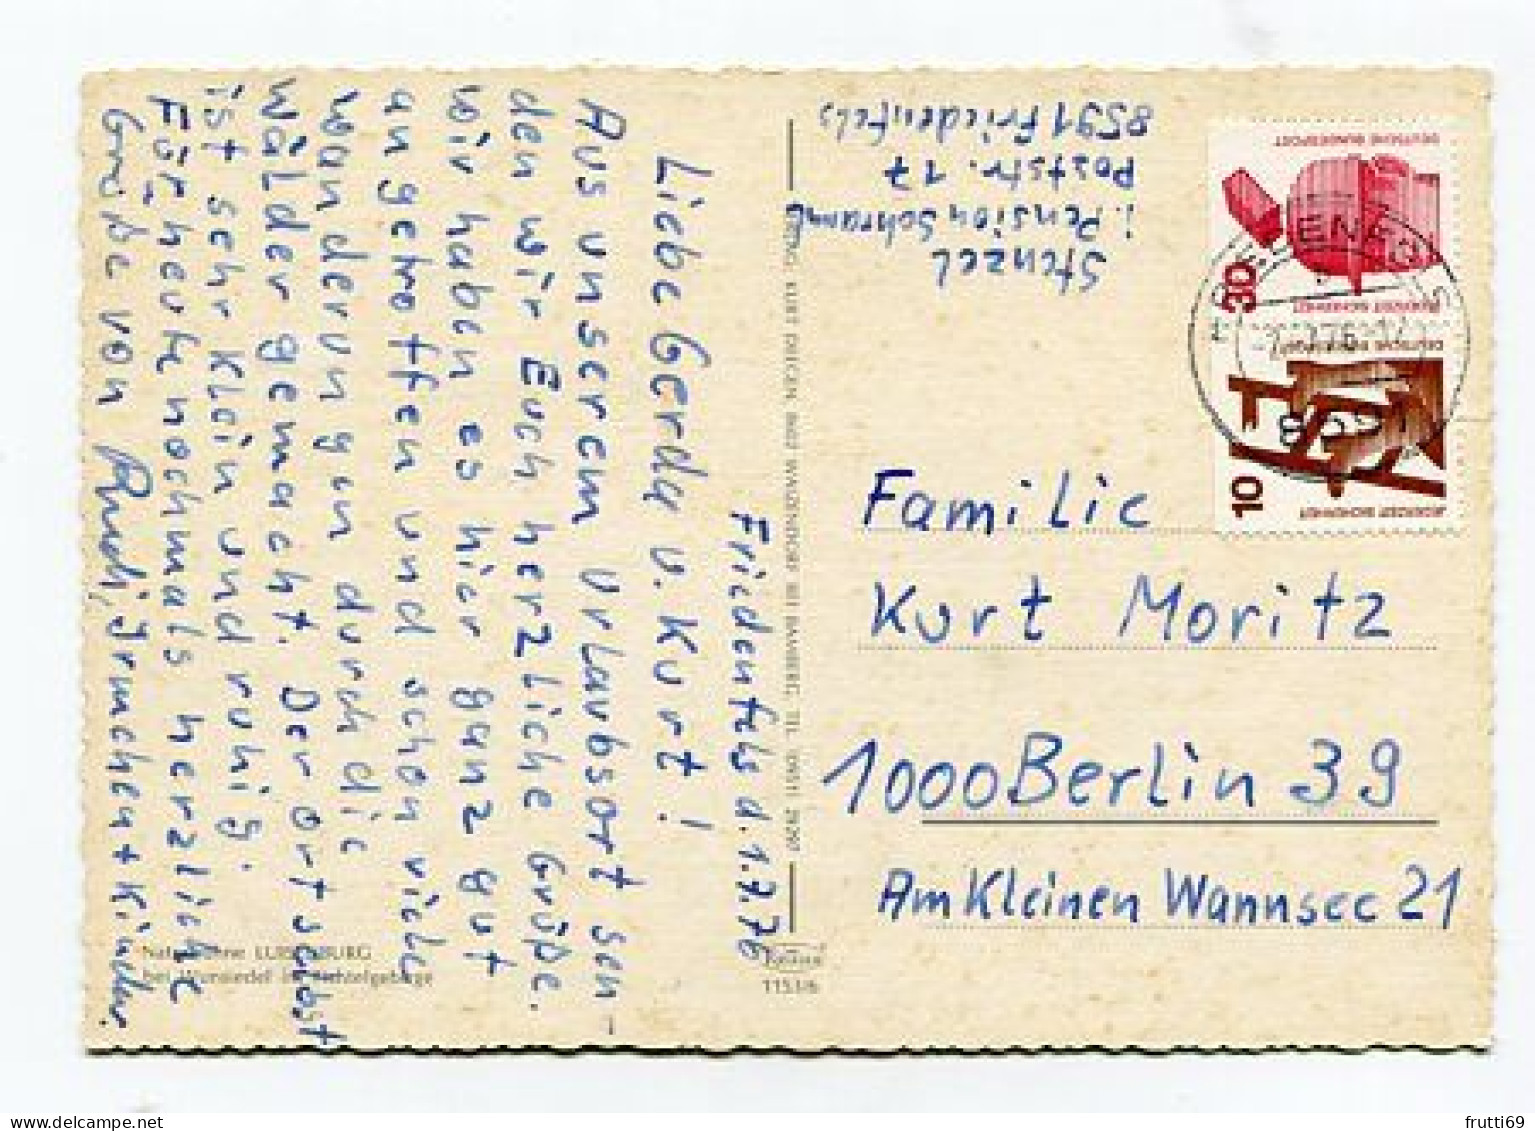 Friedenfels d. 1.7.76
Liebe Gerda u. Kurt!
Aus unserem Urlaubsort sen-
den wir Euch herzliche Grüße.
Wir haben es hier ganz gut
angetroffen und schon viele
Wanderungen durch die
Wälder gemacht. Der Ort selbst
ist sehr klein und ruhig.
Für heute nochmals herzliche
Grüße von Rudi, Irmchen + Kinder.
Naturbühne LUISENBURG
bei Wunsiedel im Fichtelgebirge
VERLAG KURT DIETZEN, 8602 WALZENDORF BEI BAMBERG, TEL. 0951
1153/6
Stenzel
i. Pension Schramm
Poststr. 17
8591 Friedenfels
DEUTSCHE BUNDESPOST
30
JEDERZEIT SICHERHEIT
DEUTSCHE BUNDESPOST
10
JEDERZEIT SICHERHEIT
FRIEDENFELS
8591
Familie
Kurt Moritz
1000 Berlin 39
Am Kleinen Wannsee 21
frutti69